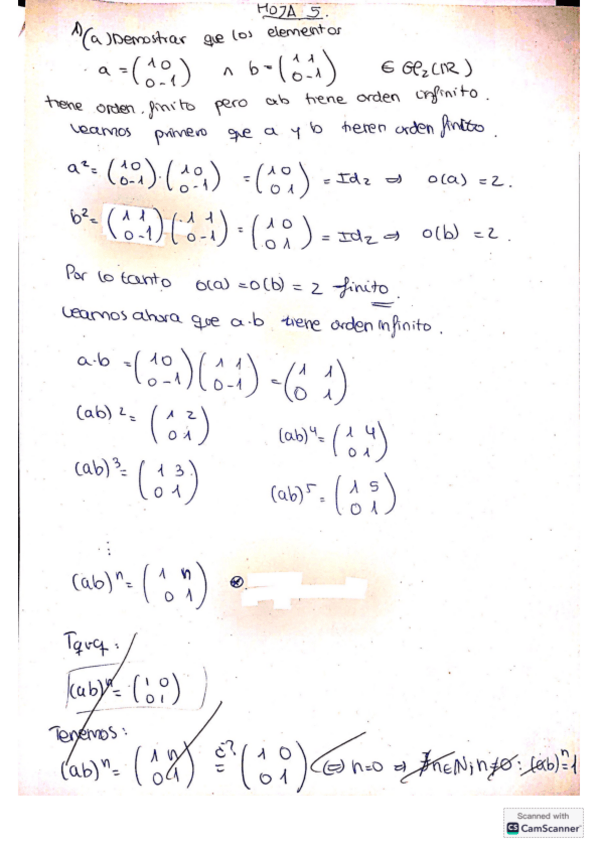 HOJA 5.
1) (a) Demostrar que los elementos
a = (1 0 / 0 -1) ∧ b = (1 1 / 0 -1) ∈ GL₂(ℝ)
tiene orden finito pero ab tiene orden infinito.
Veamos primero que a y b tienen orden finito.
a² = (1 0 / 0 -1) · (1 0 / 0 -1) = (1 0 / 0 1) = Id₂ ⇒ o(a) = 2.
b² = (1 1 / 0 -1) (1 1 / 0 -1) = (1 0 / 0 1) = Id₂ ⇒ o(b) = 2.
Por lo tanto o(a) = o(b) = 2 finito.
Veamos ahora que a·b tiene orden infinito.
a·b = (1 0 / 0 -1) (1 1 / 0 -1) = (1 1 / 0 1)
(ab)² = (1 2 / 0 1) (ab)⁴ = (1 4 / 0 1)
(ab)³ = (1 3 / 0 1) (ab)⁵ = (1 5 / 0 1)
⋮
(ab)ⁿ = (1 n / 0 1) ⊛
Tqvq:
(ab)ⁿ = (1 0 / 0 1)
Tenemos:
(ab)ⁿ = (1 n / 0 1) ¿=? (1 0 / 0 1) ⇔ n=0 ⇒ ∄n∈ℕ, n≠0 : (ab)ⁿ=1
Scanned with
CS CamScanner